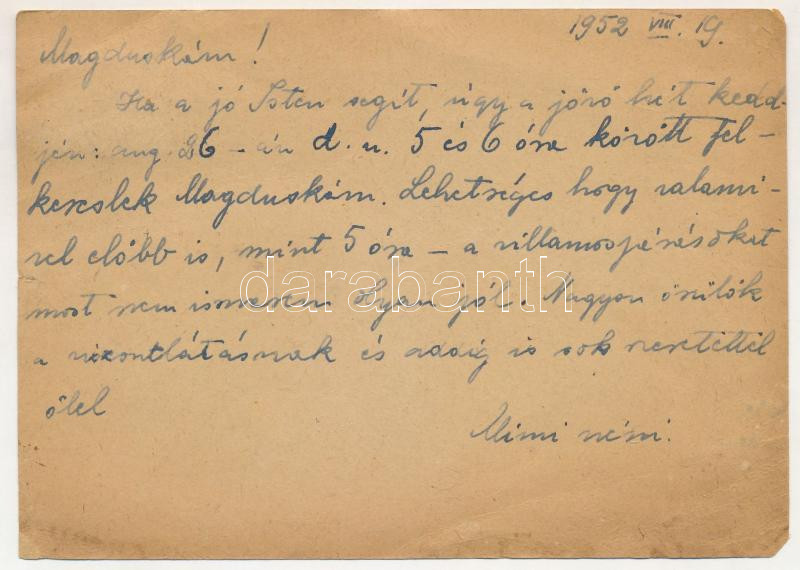 1952 VIII. 19.
Magduskám!
Ha a jó Isten segít, úgy a jövő hét kedd-
jén: aug. 26-án d. u. 5 és 6 óra között fel-
kereslek Magduskám. Lehetséges hogy valami-
vel előbb is, mint 5 óra - a villamosjárásokat
most nem ismerem olyan jól. Nagyon örülök
a viszontlátásnak és addig is sok szeretettel
ölel
Mimi néni.
darabanth.com